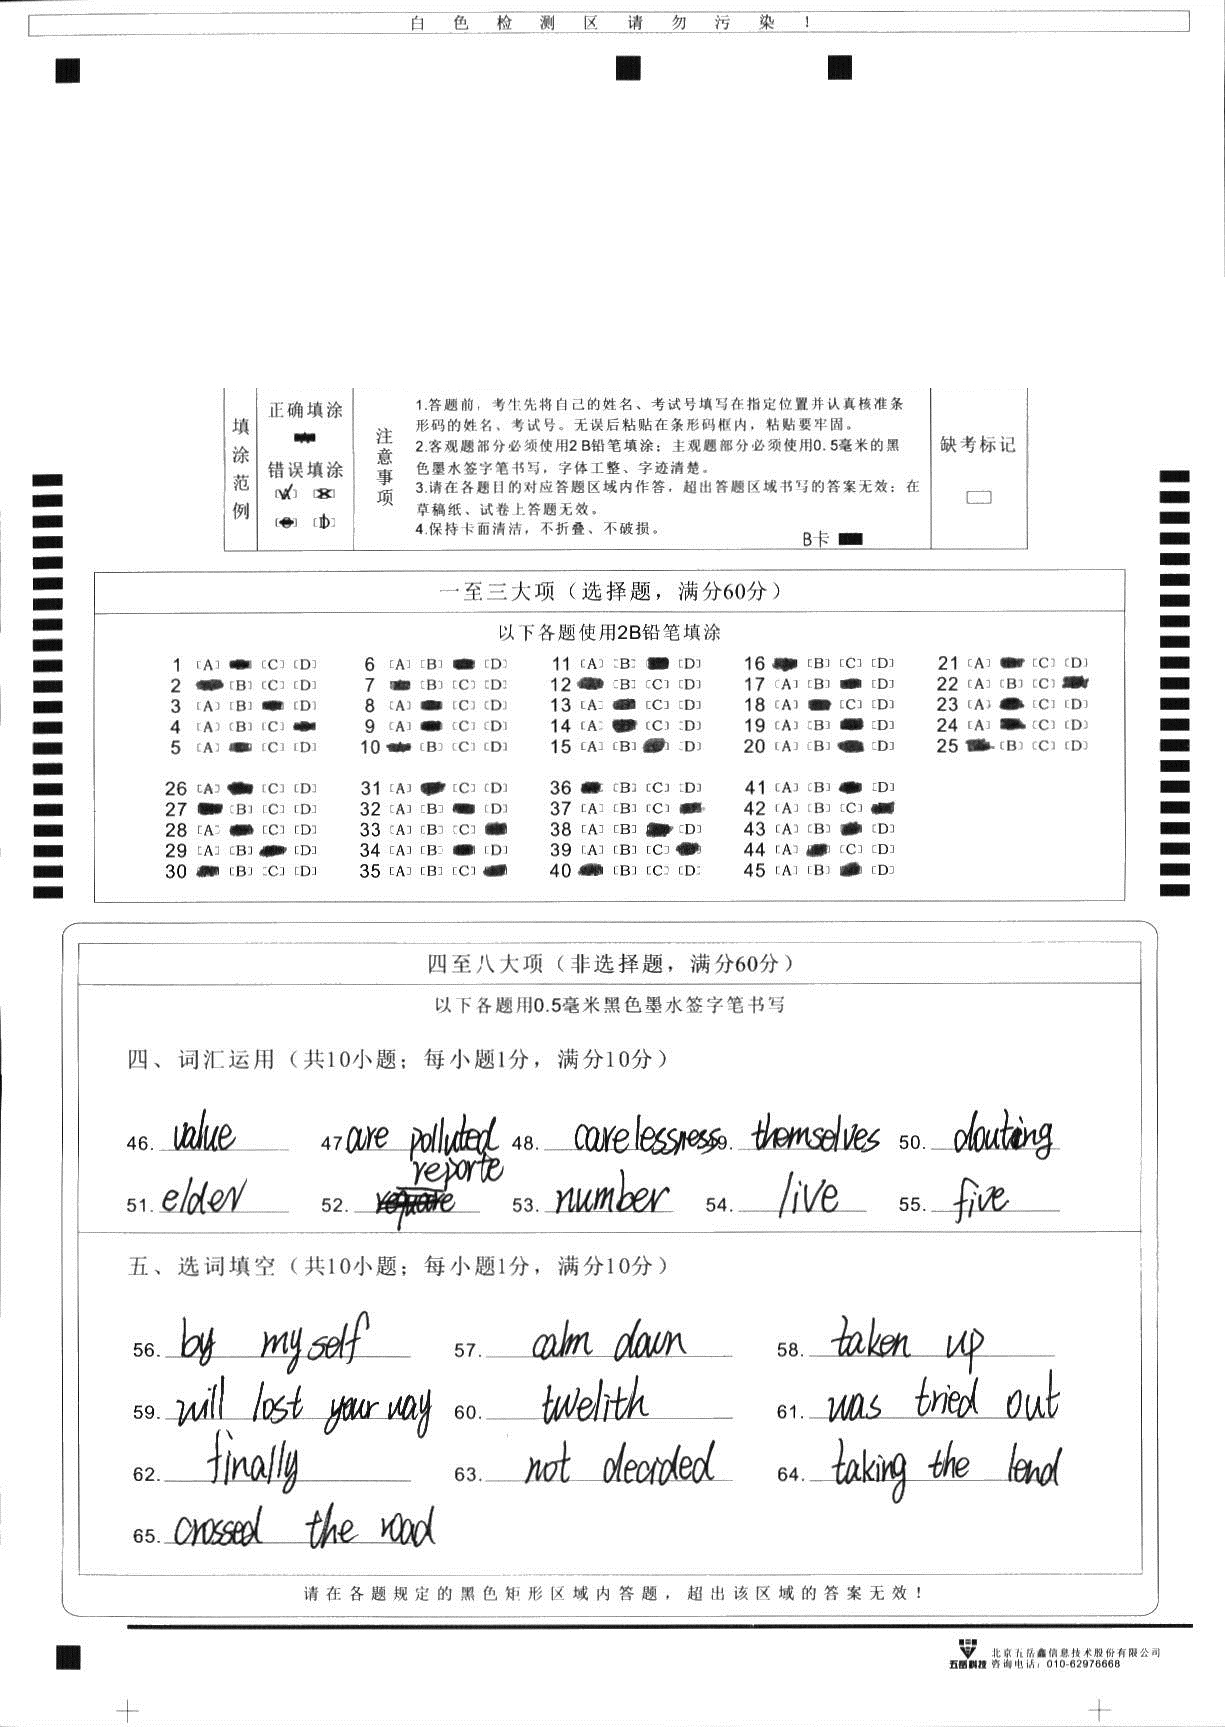 白色检测区请勿污染!
填涂范例
正确填涂
错误填涂
[A] [B]
[C] [D]
注意事项
1.答题前，考生先将自己的姓名、考试号填写在指定位置并认真核准条
形码的姓名、考试号。无误后粘贴在条形码框内，粘贴要牢固。
2.客观题部分必须使用2B铅笔填涂；主观题部分必须使用0.5毫米的黑
色墨水签字笔书写，字体工整、字迹清楚。
3.请在各题目的对应答题区域内作答，超出答题区域书写的答案无效；在
草稿纸、试卷上答题无效。
4.保持卡面清洁，不折叠、不破损。
B卡
缺考标记
一至三大项（选择题，满分60分）
以下各题使用2B铅笔填涂
1 [A] [C] [D] 6 [A] [B] [D] 11 [A] [B] [D] 16 [B] [C] [D] 21 [A] [C] [D]
2 [B] [C] [D] 7 [B] [C] [D] 12 [B] [C] [D] 17 [A] [B] [D] 22 [A] [B] [C]
3 [A] [B] [D] 8 [A] [C] [D] 13 [A] [C] [D] 18 [A] [C] [D] 23 [A] [C] [D]
4 [A] [B] [C] 9 [A] [C] [D] 14 [A] [C] [D] 19 [A] [B] [D] 24 [A] [C] [D]
5 [A] [C] [D] 10 [B] [C] [D] 15 [A] [B] [D] 20 [A] [B] [D] 25 [B] [C] [D]
26 [A] [C] [D] 31 [A] [C] [D] 36 [B] [C] [D] 41 [A] [B] [D]
27 [B] [C] [D] 32 [A] [B] [D] 37 [A] [B] [C] 42 [A] [B] [C]
28 [A] [C] [D] 33 [A] [B] [C] 38 [A] [B] [D] 43 [A] [B] [D]
29 [A] [B] [D] 34 [A] [B] [D] 39 [A] [B] [C] 44 [A] [C] [D]
30 [B] [C] [D] 35 [A] [B] [C] 40 [B] [C] [D] 45 [A] [B] [D]
四至八大项（非选择题，满分60分）
以下各题用0.5毫米黑色墨水签字笔书写
四、词汇运用（共10小题；每小题1分，满分10分）
46. value 47 are polluted 48. carelessness 49. themselves 50. douting
51. elder 52. reporte 53. number 54. live 55. five
五、选词填空（共10小题；每小题1分，满分10分）
56. by myself 57. calm down 58. taken up
59. will lost your way 60. twelith 61. was tried out
62. finally 63. not decided 64. taking the lend
65. crossed the road
请在各题规定的黑色矩形区域内答题，超出该区域的答案无效!
五岳科技
北京五岳鑫信息技术股份有限公司
咨询电话：010-62976668